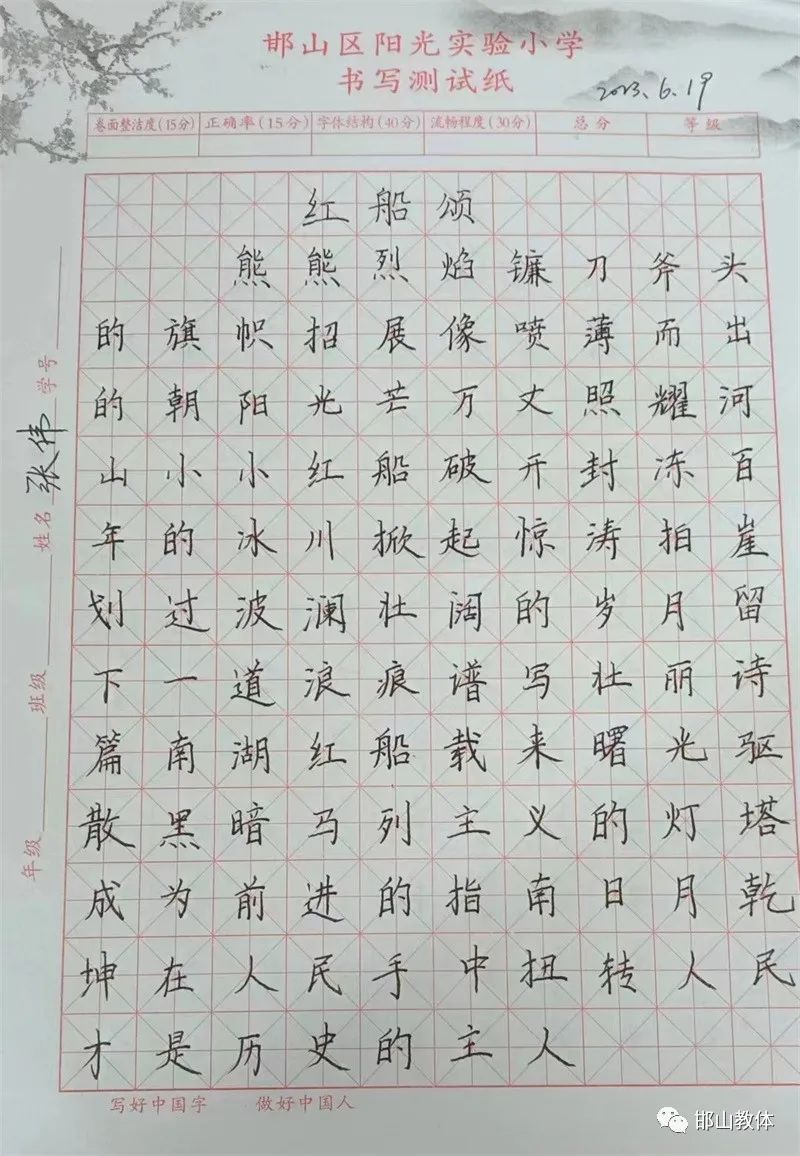 邯山区阳光实验小学
书写测试纸
2023.6.19
卷面整洁度(15分) 正确率(15分) 字体结构(40分) 流畅程度(30分) 总分 等级
红船颂
熊熊烈焰镰刀斧头
的旗帜招展像喷薄而出
的朝阳光芒万丈照耀河
山小小红船破开封冻百
年的冰川掀起惊涛拍崖
划过波澜壮阔的岁月留
下一道浪痕谱写壮丽诗
篇南湖红船载来曙光驱
散黑暗马列主义的灯塔
成为前进的指南日月乾
坤在人民手中扭转人民
才是历史的主人
写好中国字 做好中国人
年级 班级 姓名 张伟 学号
邯山教体